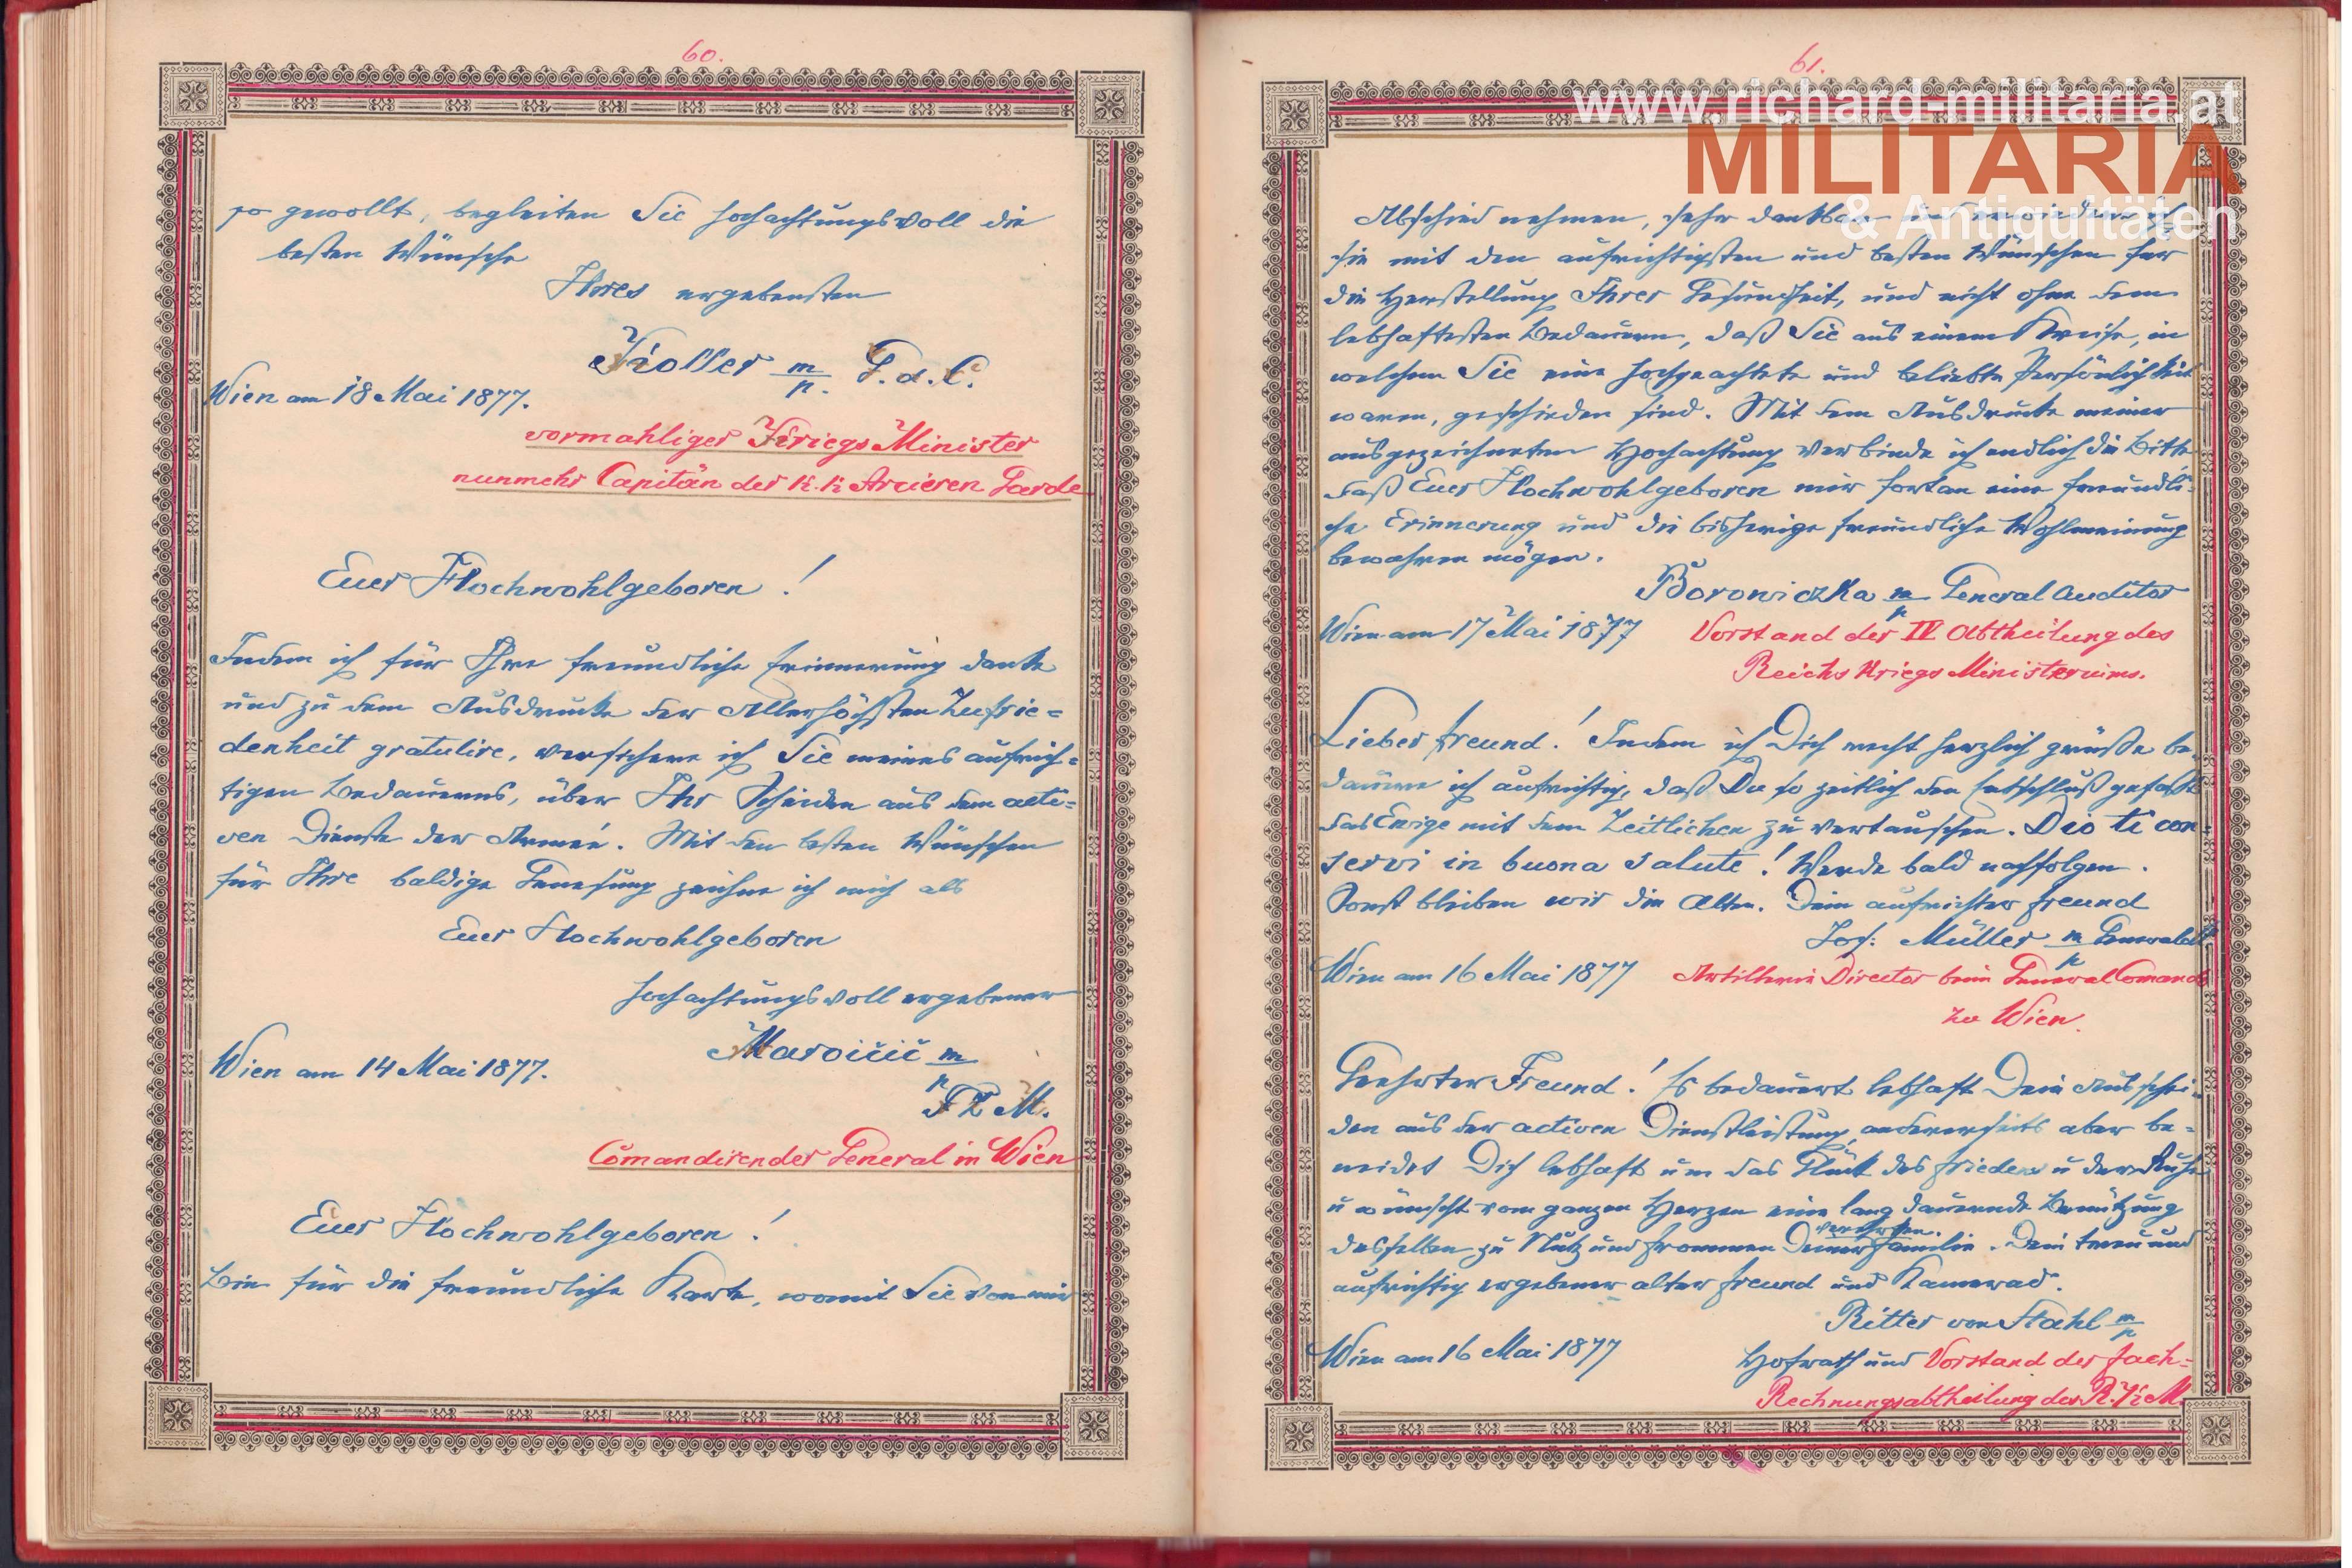 60.
so gewollt, begleiten Sie hochachtungsvoll die
besten Wünsche
Ihres ergebensten
Koller m/p. G.d.C.
Wien am 18 Mai 1877.
vormahliger Kriegs Minister
nunmehr Capitän der K.K Arcieren Garde
Euer Hochwohlgeboren!
Indem ich für Ihre freundliche Erinnerung danke
und zu dem Ausdrucke der Allerhöchsten Zufrie=
denheit gratulire, versichere ich Sie meines aufrich=
tigen Bedauerns, über Ihr Scheiden aus dem acti=
ven Dienste der Armee. Mit den besten Wünschen
für Ihre baldige Genesung zeichne ich mich als
Euer Hochwohlgeboren
hochachtungsvoll ergebener
Maroičić m/p
FZM.
Comandirender General in Wien
Euer Hochwohlgeboren!
Bin für die freundliche Karte, womit Sie von mir
61.
www.richard-militaria.at
MILITARIA
& Antiquitäten
Abschied nehmen, sehr dankbar und erwiedere ich
sie mit den aufrichtigsten und besten Wünschen für
die Herstellung Ihrer Gesundheit, und nicht ohne dem
lebhaftesten Bedauern, daß Sie aus einem Kreise, in
welchem Sie eine hochgeachtete und beliebte Persönlichkeit
waren, geschieden sind. Mit dem Ausdrucke meiner
ausgezeichneten Hochachtung verbinde ich endlich die Bitte
daß Euer Hochwohlgeboren mir fortan eine freundli=
che Erinnerung und die bisherige freundliche Wohlmeinung
bewahren mögen.
Borowiczka m/p General Auditor
Wien am 17 Mai 1877
Vorstand der IV Abtheilung des
Reichs Kriegs Ministeriums.
Lieber Freund! Indem ich Dich recht herzlich grüße be=
dauere ich aufrichtig, daß Du so zeitlich den Entschluß gefaßt
das Ewige mit dem Zeitlichen zu vertauschen. Dio ti con=
servi in buona salute! Werde bald nachfolgen.
Sonst bleiben wir die Alten. Dein aufrichter Freund
Jos: Müller m/p
Wien am 16 Mai 1877
Artillerie Director beim General Comando
zu Wien.
Geehrter Freund! Es bedauert lebhaft Dein Ausschei=
den aus der activen Dienstleistung, andererseits aber be=
neidet Dich lebhaft um das Glück des Friedens u der Ruhe
u wünscht vom ganzen Herzen eine lang dauernde Benützung
desselben zu Nutz und Frommen Deiner verehrten Familie. Dein treu und
aufrichtig ergebener alter Freund und Kamerad.
Ritter von Stahl m/p
Wien am 16 Mai 1877
Hofrath und Vorstand der Fach=
Rechnungsabtheilung des R.K.M.